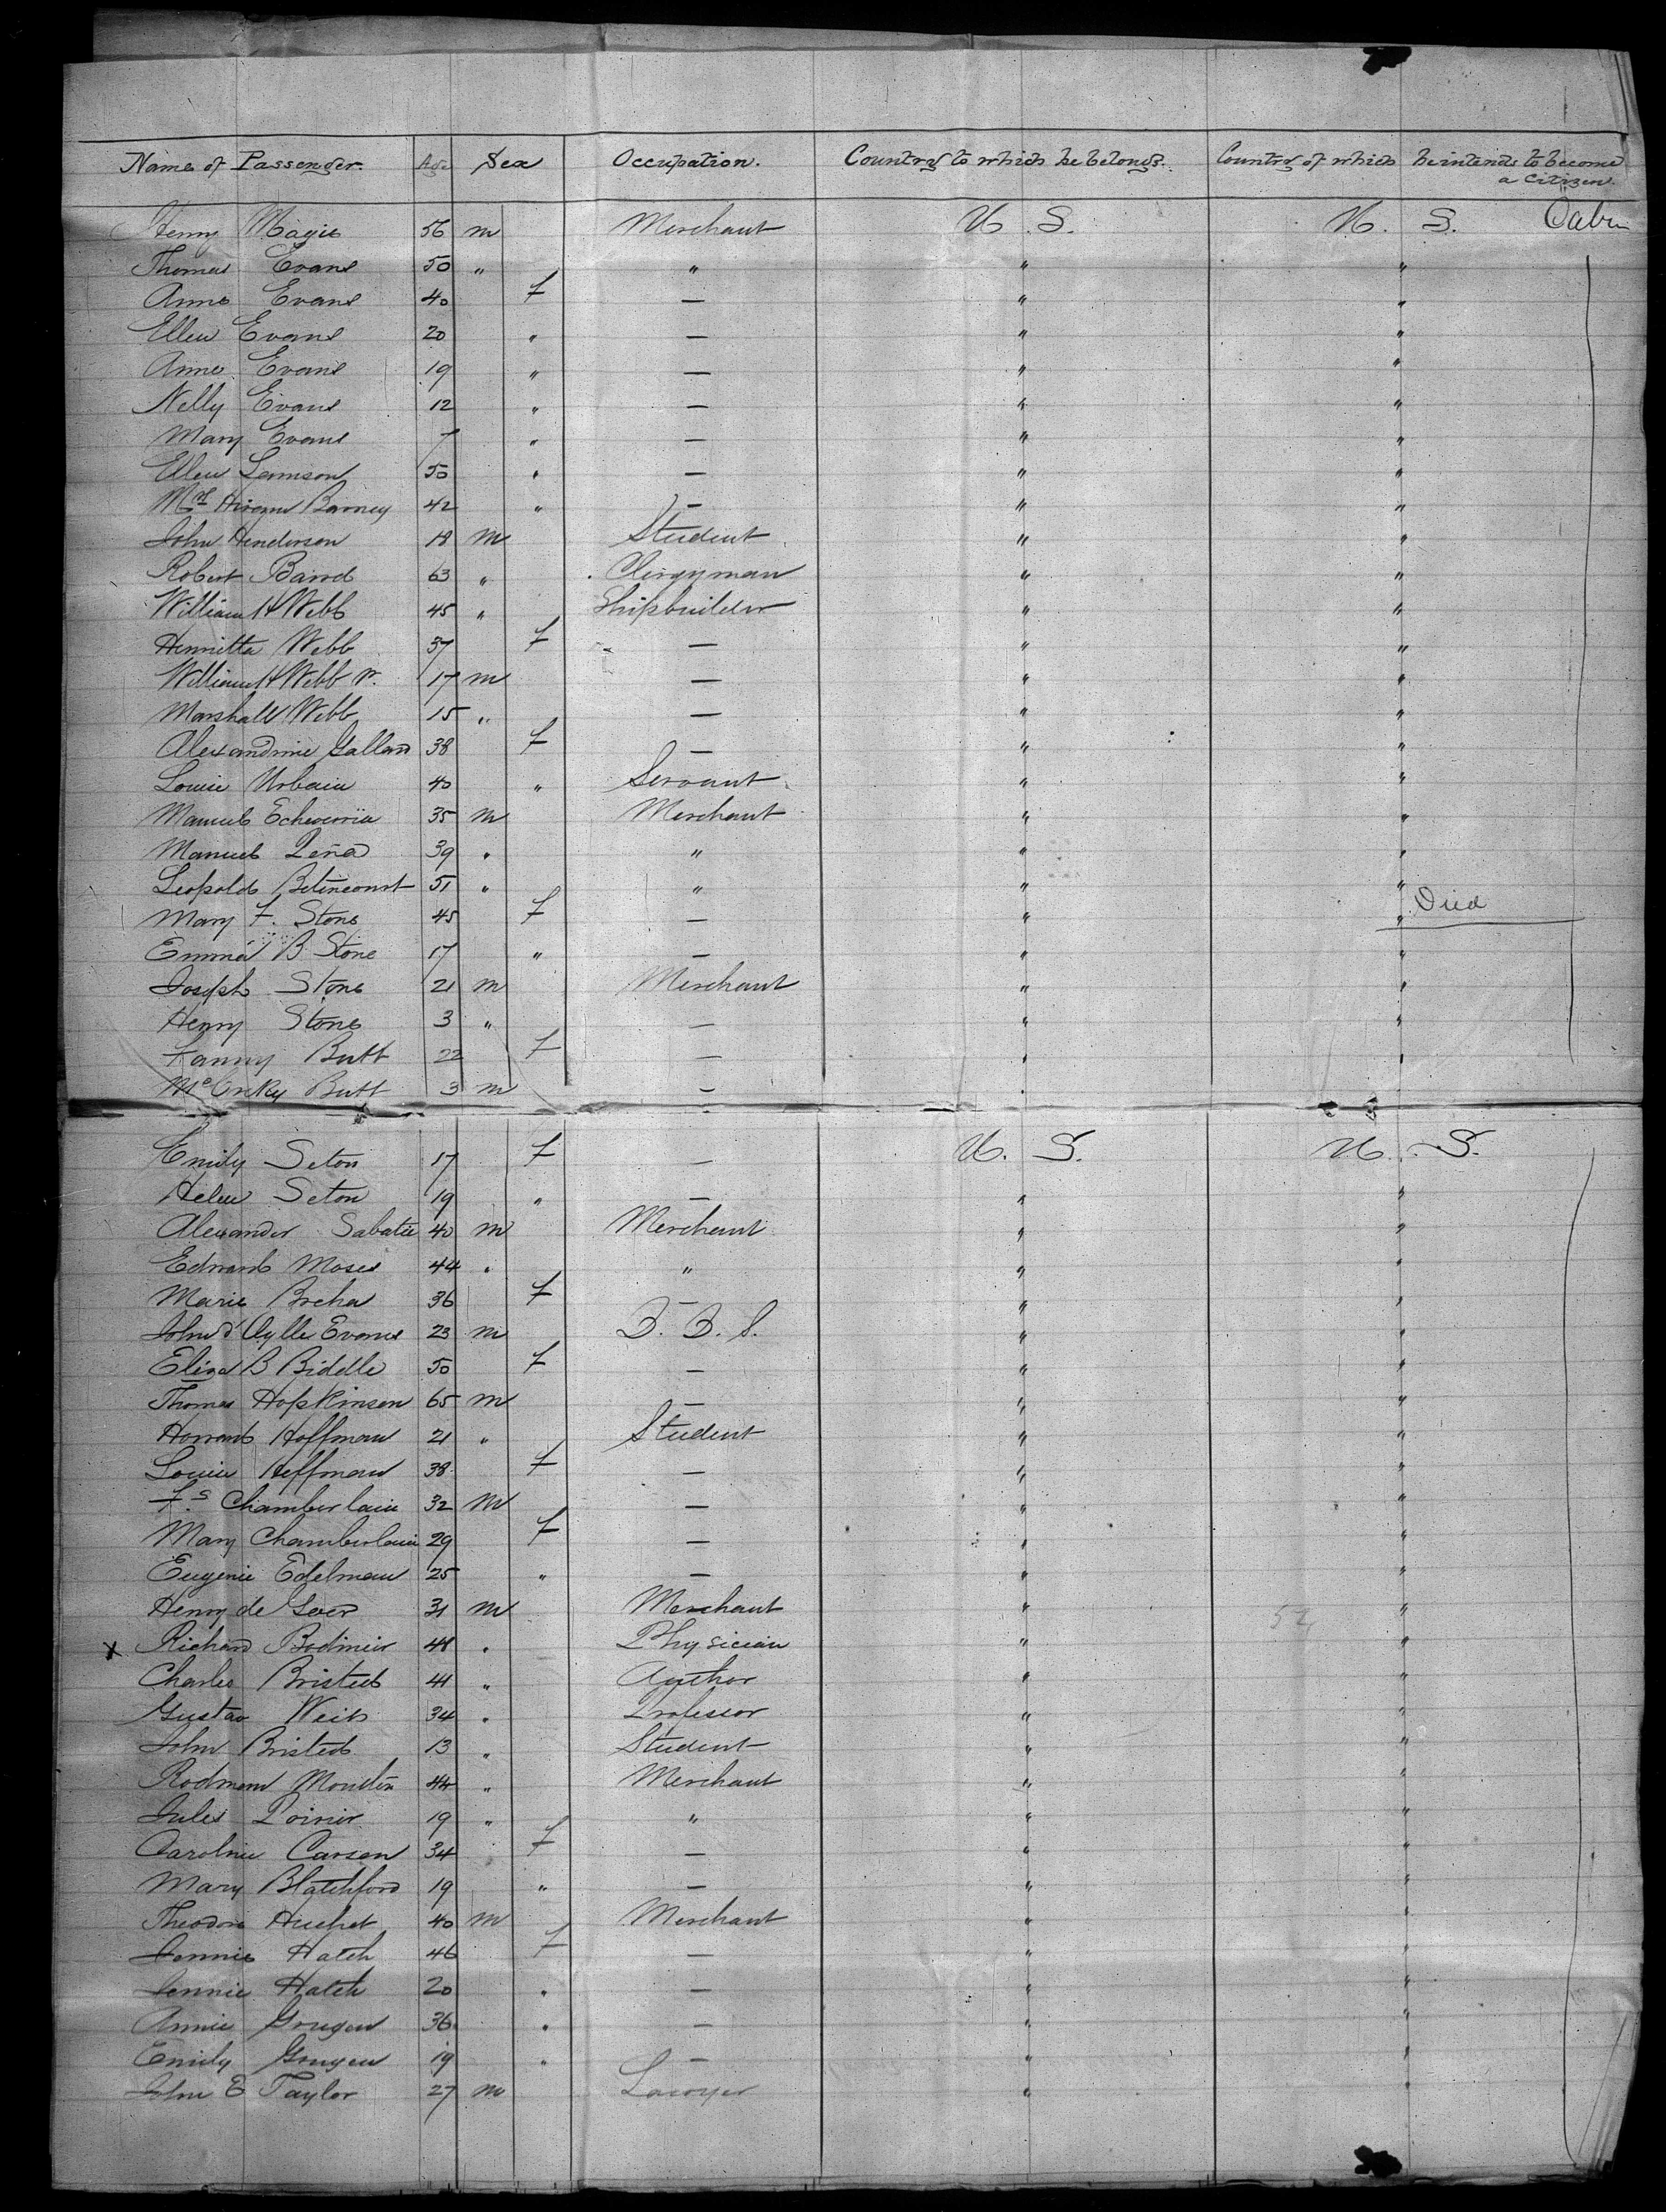 Name of Passenger. Age Sex Occupation. Country to which he belongs. Country of which he intends to become
a Citizen.
Henry Magie 56 m Merchant U. S. U. S. Cabin
Thomas Evans 50 " " " "
Anne Evans 40 f — " "
Ellen Evans 20 " — " "
Anne Evans 19 " — " "
Nelly Evans 12 " — " "
Mary Evans 7 " — " "
Ellen 50 " — " "
Mrs Hiram Barney 42 " — " "
John Henderson 18 m Student " "
Robert Baird 63 " Clergyman " "
William H Webb 45 " Shipbuilder " "
Henrietta Webb 37 f — " "
William H Webb Jr. 17 m — " "
Marshall Webb 15 " — " "
Alexandrine Galland 38 f — " "
Louise Urbain 40 " Servant " "
Manuel Echeverria 35 m Merchant " "
Manuel Peña 39 " " " "
Leopold Betancourt 51 " " " "
Mary F. Stone 45 f — " " Died
Emma B Stone 17 " — " "
Joseph Stone 21 m Merchant " "
Henry Stone 3 " — " "
Fanny Butt 22 f — " "
Butt 3 m — " "
Emily Seton 17 f — U. S. U. S.
Helen Seton 19 " — " "
Alexander Sabatie 40 m Merchant " "
Edward Moses 44 " " " "
Marie 36 f — " "
John d' Evans 23 m D. D. S. " "
Eliza B Biddle 50 f — " "
Thomas Hopkinson 65 m — " "
Howard Hoffman 21 " Student " "
Louise Hoffman 38 f — " "
F. S Chamberlain 32 m — " "
Mary Chamberlain 29 f — " "
Eugenie Edelman 25 " — " "
Henry de Goer 31 m Merchant " 52 "
x Richard Bodmeir 48 " Physician " "
Charles Bristed 41 " Author " "
Gustav Weis 34 " Professor " "
John Bristed 13 " Student " "
Rodmond 44 " Merchant " "
Jules Poirier 19 " " " "
Caroline Carson 34 f — " "
Mary Blatchford 19 " — " "
Theodore Huchet 40 m Merchant " "
Jennie Hatch 46 f — " "
Jennie Hatch 20 " — " "
Annie 36 " — " "
Emily 19 " — " "
John E Taylor 27 m Lawyer " "